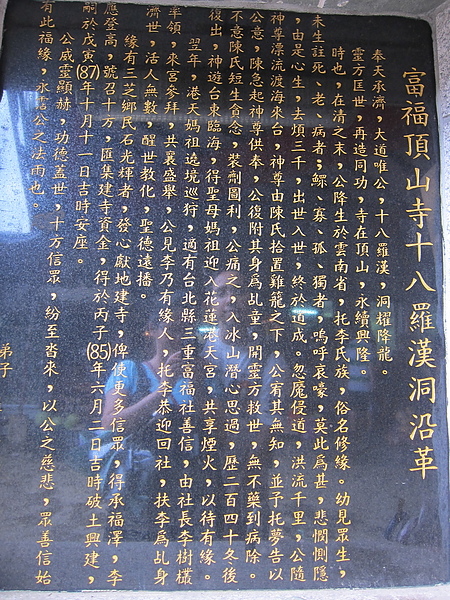 富福頂山寺十八羅漢洞沿革
奉天承濟，大道唯公，十八羅漢，洞耀降龍。
靈方匡世，再造同功，寺在頂山，永續興隆。
時也，在清之末，公降生於雲南省，托李氏族，俗名修緣。幼見眾生，
未生註死、老、病者；鰥、寡、孤、獨者。嗚呼哀嚎，莫此為甚，悲憫惻隱
，由是心生，去煩三千，出世入世，終於道成。忽魔侵道，洪流千里，公隨
神尊漂流渡海來台，神尊由陳氏拾置雞籠之下，公宥其無知，並予托夢告以
公意，陳急起神尊供奉，公復附其身為乩童，開靈方救世，無不藥到病除。
不意陳氏短生貪念，裝劑圖利，公痛之，入冰山潛心思過，歷二百四十冬後
復出，神遊台東臨海，得聖母媽祖迎入花蓮港天宮，共享煙火，以待有緣。
翌年，港天媽祖遶境巡狩，適有台北縣三重富福社善信，由社長李樹欉
率領，來宮參拜，共襄盛舉，公見李乃有緣人，托李恭迎回社，扶李為乩身
濟世，活人無數，醒世教化，聖德遠播。
緣有三芝鄉民石光輝者，發心獻地建寺，俾使更多信眾，得承福澤，李
應登高，號召十方，匯集建寺資金，得於丙子(85)年六月二日吉時破土興建，
嗣於戊寅(87)年十月十一日吉時安座。
公威靈顯赫，功德蓋世，十方信眾，紛至沓來，以公之慈悲，眾善信始
有此福緣，永霑公之法雨也。
弟子